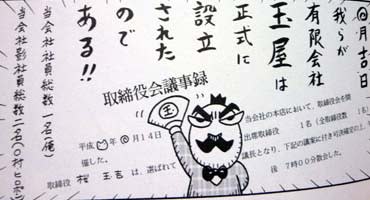 @月吉日
我らが
有限会社
玉屋は
正式に
設立
された
ので
ある!!
当会社社員総数一名(俺)
当会社影社員総数一名(〇村ヒロ志)
取締役会議事録
玉
当会社の本店において、取締役会を開
平成 年@月14日
催した。
出席取締役 1名(全取締役数
取締役 桜 玉吉 は、選ばれて議長となり、下記の議案に付き可決確定の上、
後7時00分散会した。